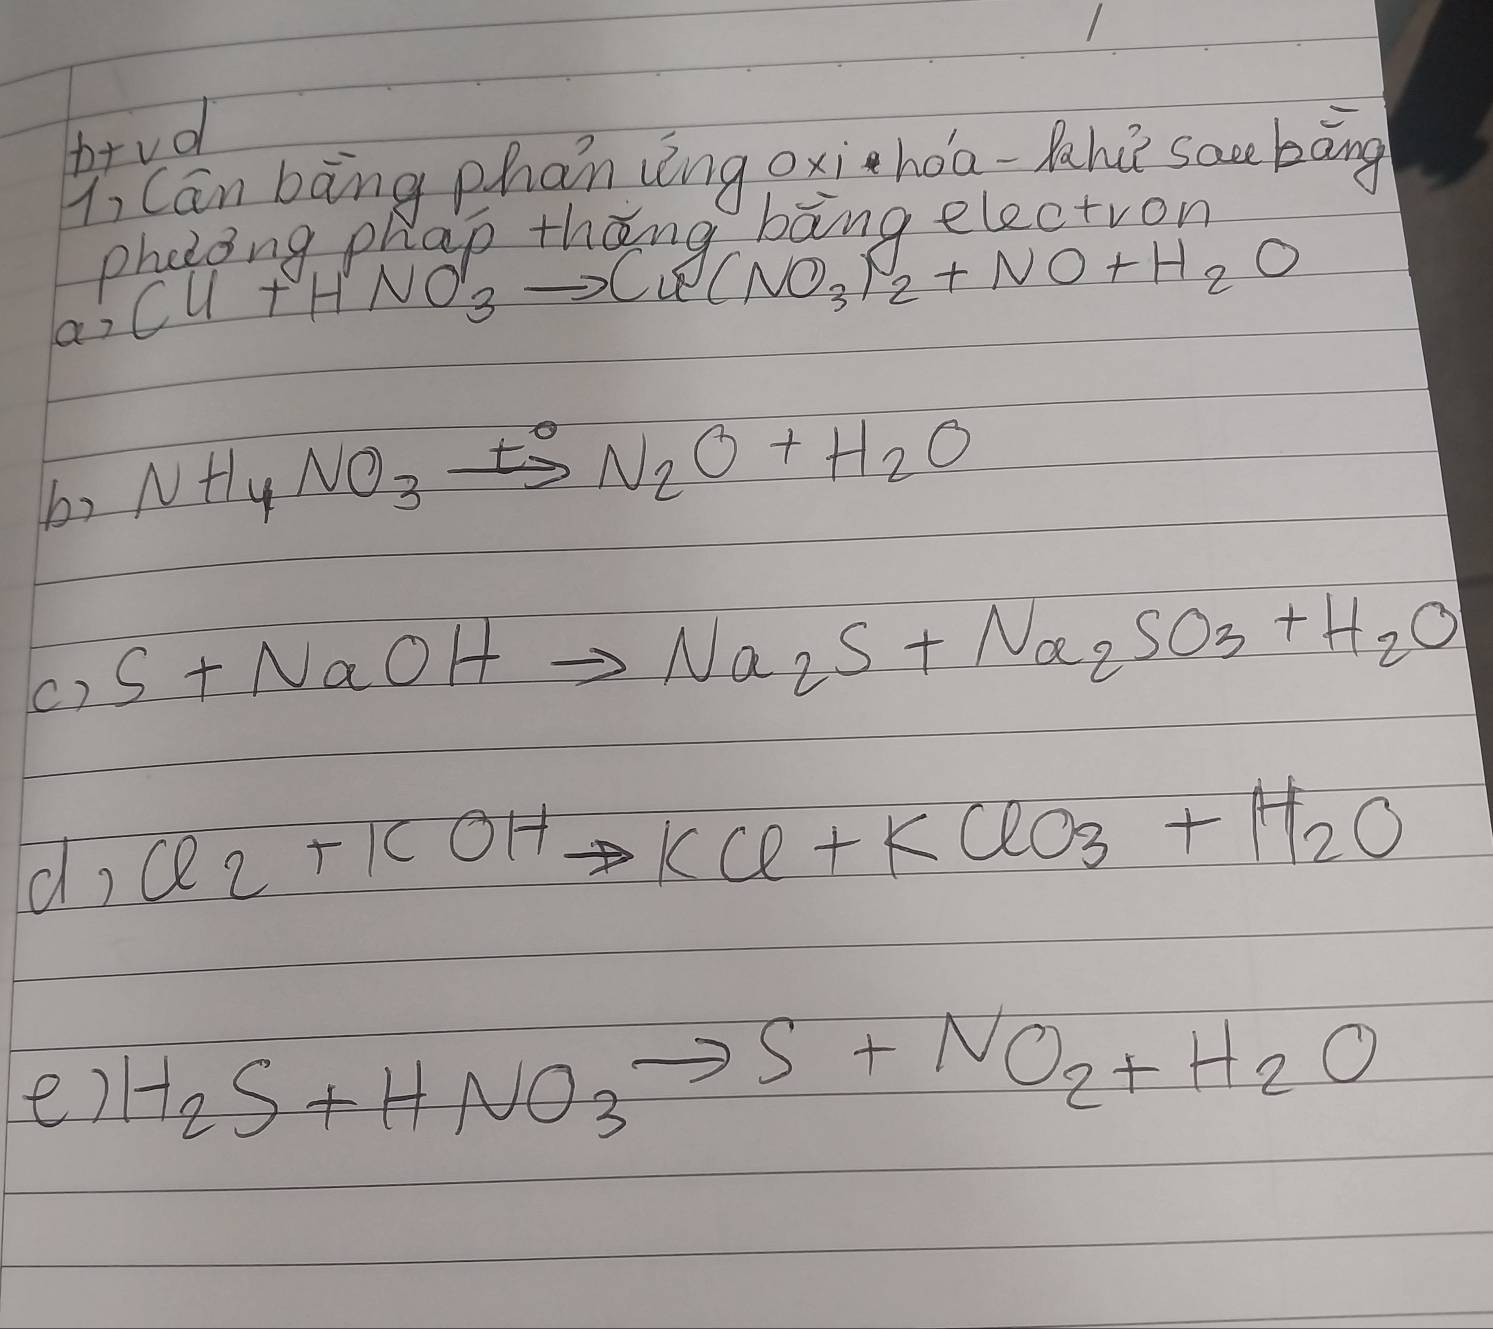 b+vd
1, Cân bằng phản ứng oxi hóa - khử sau bằng
phương pháp thăng bằng electron
a, Cu + HNO₃ → Cu(NO₃)₂ + NO + H₂O
b, NH₄NO₃ →t⁰ N₂O + H₂O
c, S + NaOH → Na₂S + Na₂SO₃ + H₂O
d, Cl₂ + KOH → KCl + KClO₃ + H₂O
e) H₂S + HNO₃ → S + NO₂ + H₂O